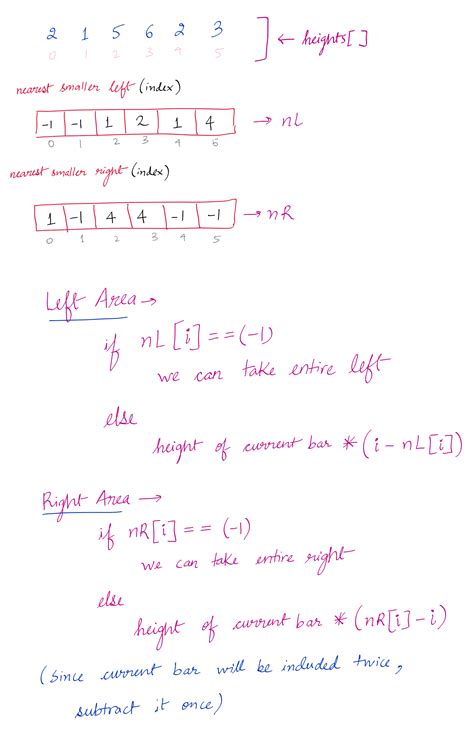 2 1 5 6 2 3 ] ← heights[]
0 1 2 3 4 5
nearest smaller left (index)
-1 -1 1 2 1 4 → nL
0 1 2 3 4 5
nearest smaller right (index)
1 -1 4 4 -1 -1 → nR
0 1 2 3 4 5
Left Area →
if nL[i]==(-1)
we can take entire left
else
height of current bar *(i - nL[i])
Right Area →
if nR[i] == (-1)
we can take entire right
else
height of current bar * (nR[i]-i)
(Since current bar will be included twice,
subtract it once)